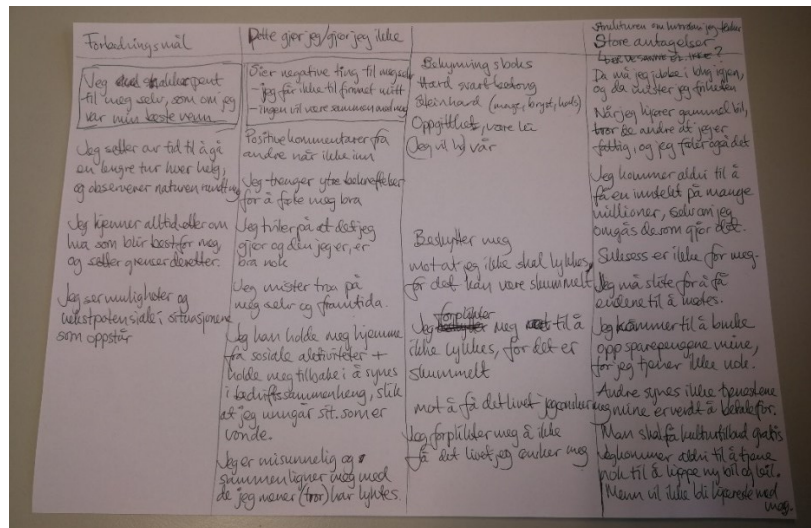 Forbedringsmål
Jeg snakker pent
til meg selv, som om jeg
var min beste venn
Jeg setter av tid til å gå
en lengre tur hver helg,
og observerer naturen rundt meg
Jeg kjenner alltid etter om
hva som blir best for meg,
og setter grenser deretter.
Jeg ser muligheter og
vekstpotensiale i situasjonene
som oppstår
Dette gjør jeg/gjør jeg ikke
Sier negative ting til meg selv
- jeg får ikke til firmaet mitt
- ingen vil være sammen med meg
Positive kommentarer fra
andre når ikke inn
Jeg trenger ytre bekreftelser
for å føle meg bra
Jeg tviler på at det jeg
gjør og den jeg er, er
bra nok
Jeg mister troa på
meg selv og framtida.
Jeg kan holde meg hjemme
fra sosiale aktiviteter +
holde meg tilbake i å synes
i bedriftssammenheng, slik
at jeg unngår sit. som er
vonde.
Jeg er misunnelig og
sammenligner meg med
de jeg mener (tror) har lyktes.
Bekymringsboks
Hard svart
Steinhard (mage, bryst, hals)
Oppgitthet, være lei
(Jeg vil ha) vår
Beskytter meg
mot at jeg ikke skal lykkes,
for det kan være skummelt
Jeg forplikter meg til å
ikke lykkes, for det er
skummelt
mot å få det livet jeg ønsker meg
Jeg forplikter meg å ikke
få det livet jeg ønsker meg
Strukturen om hvordan jeg tenker
Store antagelser
Da må jeg jobbe i bolig igjen,
og da mister jeg friheten
Når jeg kjører gammel bil,
tror de andre at jeg er
fattig, og jeg føler også det
Jeg kommer aldri til å
få en inntekt på mange
millioner, selv om jeg
omgås de som gjør det.
Suksess er ikke for meg.
Jeg må slite for å få
endene til å møtes.
Jeg kommer til å bruke
opp sparepengene mine,
for jeg tjener ikke nok.
Andre synes ikke tjenestene
mine er verdt å betale for.
Man skal få kulturtilbud gratis
Jeg kommer aldri til å tjene
nok til å kjøpe ny bil og
Menn vil ikke bli kjæreste med
meg.